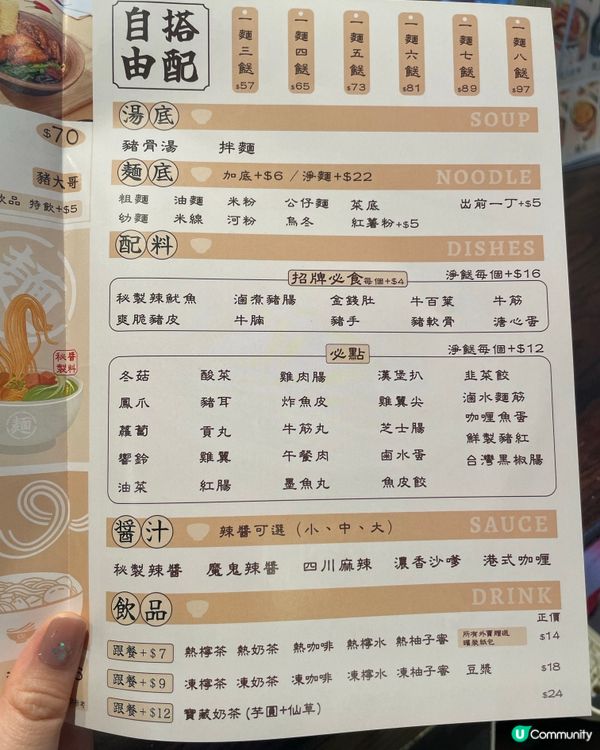 自由
搭配
一麵三餸 $57
一麵四餸 $65
一麵五餸 $73
一麵六餸 $81
一麵七餸 $89
一麵八餸 $97
湯底 SOUP
豬骨湯 拌麵
麵底 加底+$6 / 淨麵+$22 NOODLE
粗麵 油麵 米粉 公仔麵 菜底 出前一丁+$5
幼麵 米線 河粉 烏冬 紅薯粉+$5
配料 DISHES
招牌必食 每個+$4 淨餸每個+$16
秘製辣魷魚 滷煮豬腸 金錢肚 牛百葉 牛筋
爽脆豬皮 牛腩 豬手 豬軟骨 溏心蛋
必點 淨餸每個+$12
冬菇 酸菜 雞肉腸 漢堡扒 韭菜餃
鳳爪 豬耳 炸魚皮 雞翼尖 滷水麵筋
蘿蔔 貢丸 牛筋丸 芝士腸 咖喱魚蛋
響鈴 雞翼 午餐肉 鹵水蛋 鮮製豬紅
油菜 紅腸 墨魚丸 魚皮餃 台灣黑椒腸
醬汁 辣醬可選（小、中、大） SAUCE
秘製辣醬 魔鬼辣醬 四川麻辣 濃香沙嗲 港式咖喱
飲品 DRINK
正價
跟餐+$7 熱檸茶 熱奶茶 熱咖啡 熱檸水 熱柚子蜜 $14
跟餐+$9 凍檸茶 凍奶茶 凍咖啡 凍檸水 凍柚子蜜 豆漿 $18
跟餐+$12 寶藏奶茶（芋圓+仙草） $24
$70
豬大哥
飲品 特飲+$5
麵
秘製
醬料
麵
U Community